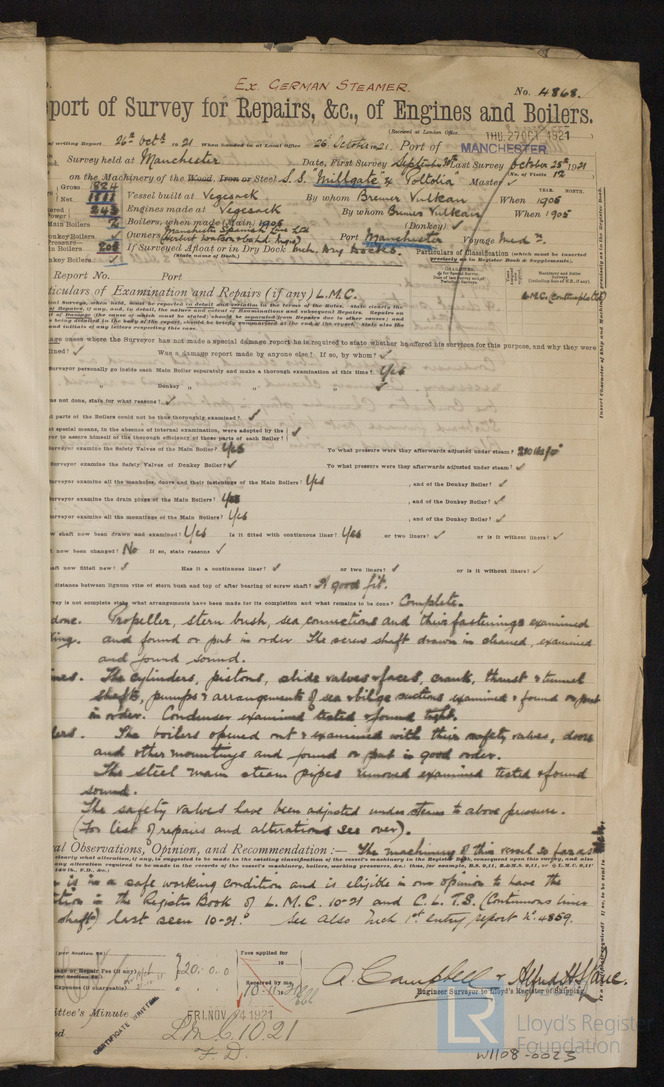 Ex. GERMAN STEAMER.
No. 4868.
port of Survey for Repairs, &c., of Engines and Boilers.
(Received at London Office THU. 27 OCT. 1921
of writing Report 26th Octr 1921 When handed in at Local Office 26 October 21. Port of MANCHESTER
Survey held at Manchester Date, First Survey Last Survey October 25th 1921
(No. of Visits 12
on the Machinery of the Wood, Iron or Steel S.S. "Millgate" Master ✓
Gross 1824
Net 1111
Vessel built at Vegesack By whom Bremer Vulkan When 1905
YEAR. MONTH.
243 Engines made at Vegesack By whom Bremer Vulkan When 1905
Main Boilers 2 Boilers, when made (Main) 1905 (Donkey) ✓
Donkey Boilers ✓ Owners Manchester Spanish Line Ltd Port Manchester Voyage Med n.
205 If Surveyed Afloat or in Dry Dock Mch. Dry Docks.
(State name of Dock.)
Particulars of Classification (which must be
precisely as in Register Book & Supplements).
Report No. Port
L.M.C. (Contemplated)
ticulars of Examination and Repairs (if any) L.M.C.
cases where the Surveyor has not made a special damage report he is required to state whether he offered his services for this purpose, and why they were
lined? ✓ Was a damage report made by anyone else? If so, by whom? ✓
Surveyor personally go inside each Main Boiler separately and make a thorough examination at this time? Yes
" Donkey " " ✓
as not done, state for what reasons? ✓
parts of the Boilers could not be thus thoroughly examined? ✓
special means, in the absence of internal examination, were adopted by the
or to assure himself of the thorough efficiency of those parts of each Boiler? ✓
Surveyor examine the Safety Valves of the Main Boiler? Yes To what pressure were they afterwards adjusted under steam?
Surveyor examine the Safety Valves of Donkey Boiler? ✓ To what pressure were they afterwards adjusted under steam? ✓
Surveyor examine all the manholes, doors and their fastenings of the Main Boilers? Yes , and of the Donkey Boiler? ✓
Surveyor examine the drain plugs of the Main Boilers? Yes , and of the Donkey Boiler? ✓
Surveyor examine all the mountings of the Main Boilers? Yes , and of the Donkey Boiler? ✓
w shaft now been drawn and examined? Yes Is it fitted with continuous liner? Yes or two liners? ✓ or is it without liners? ✓
t now been changed? No If so, state reasons ✓
aft now fitted new? ✓ Has it a continuous liner? ✓ or two liners? ✓ or is it without liners? ✓
distance between lignum vitæ of stern bush and top of after bearing of screw shaft? A good fit.
vey is not complete state what arrangements have been made for its completion and what remains to be done? Complete.
done. Propeller, stern bush, sea connections and their fastenings examined
ting. and found or put in order The screw shaft drawn in cleaned, examined
and found sound.
nes. The cylinders, pistons, slide valves & faces, crank, thrust & tunnel
shafts, pumps & arrangements of sea & bilge suctions examined & found or put
in order. Condenser examined tested & found tight.
lers. The boilers opened out & examined with their safety valves, doors
and other mountings and found or put in good order.
The steel main steam pipes removed examined tested & found
sound.
The safety valves have been adjusted under steam to above pressure.
(For list of repairs and alterations see over).
al Observations, Opinion, and Recommendation :— The machinery of this vessel so far as
n is in a safe working condition and is eligible in our opinion to have the
tion in the Register Book of L.M.C. 10-21 and C.L. T.S. (Continuous liner
shaft) last seen 10-21. See also Mch 1st entry, report No. 4859.
Fees applied for
£20 . 0 . 0
Received by me,
A. Campbell &
Engineer Surveyor to Lloyd's Register of Shipping.
ttee's Minute FRI. NOV 4 1921
CERTIFICATE WRITTEN
LMC 10.21
F.D.
LR
Lloyd's Register
Foundation
W1108-0023